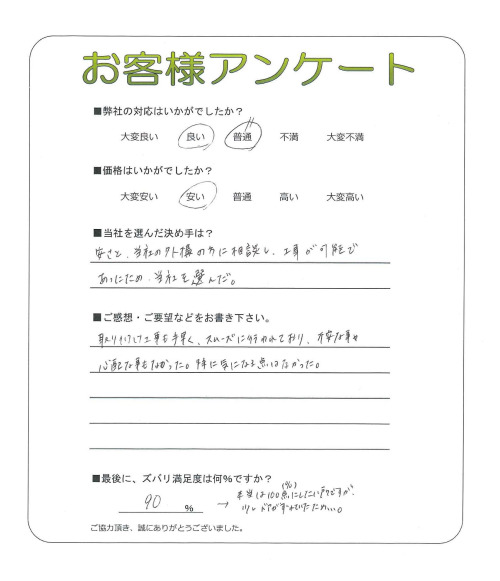 お客様アンケート
■弊社の対応はいかがでしたか？
大変良い 良い 普通 不満 大変不満
■価格はいかがでしたか？
大変安い 安い 普通 高い 大変高い
■当社を選んだ決め手は？
安さと、当社の外構の方に相談し、工事が可能で
あったため、当社を選んだ。
■ご感想・ご要望などをお書き下さい。
取り付け工事も手早く、スムーズに行われており、不安な事や
心配な事もなかった。特に気になる点はなかった。
■最後に、ズバリ満足度は何％ですか？
90 ％ → 本当は100点(%)にしたい所ですが、
少しドアが
ご協力頂き、誠にありがとうございました。